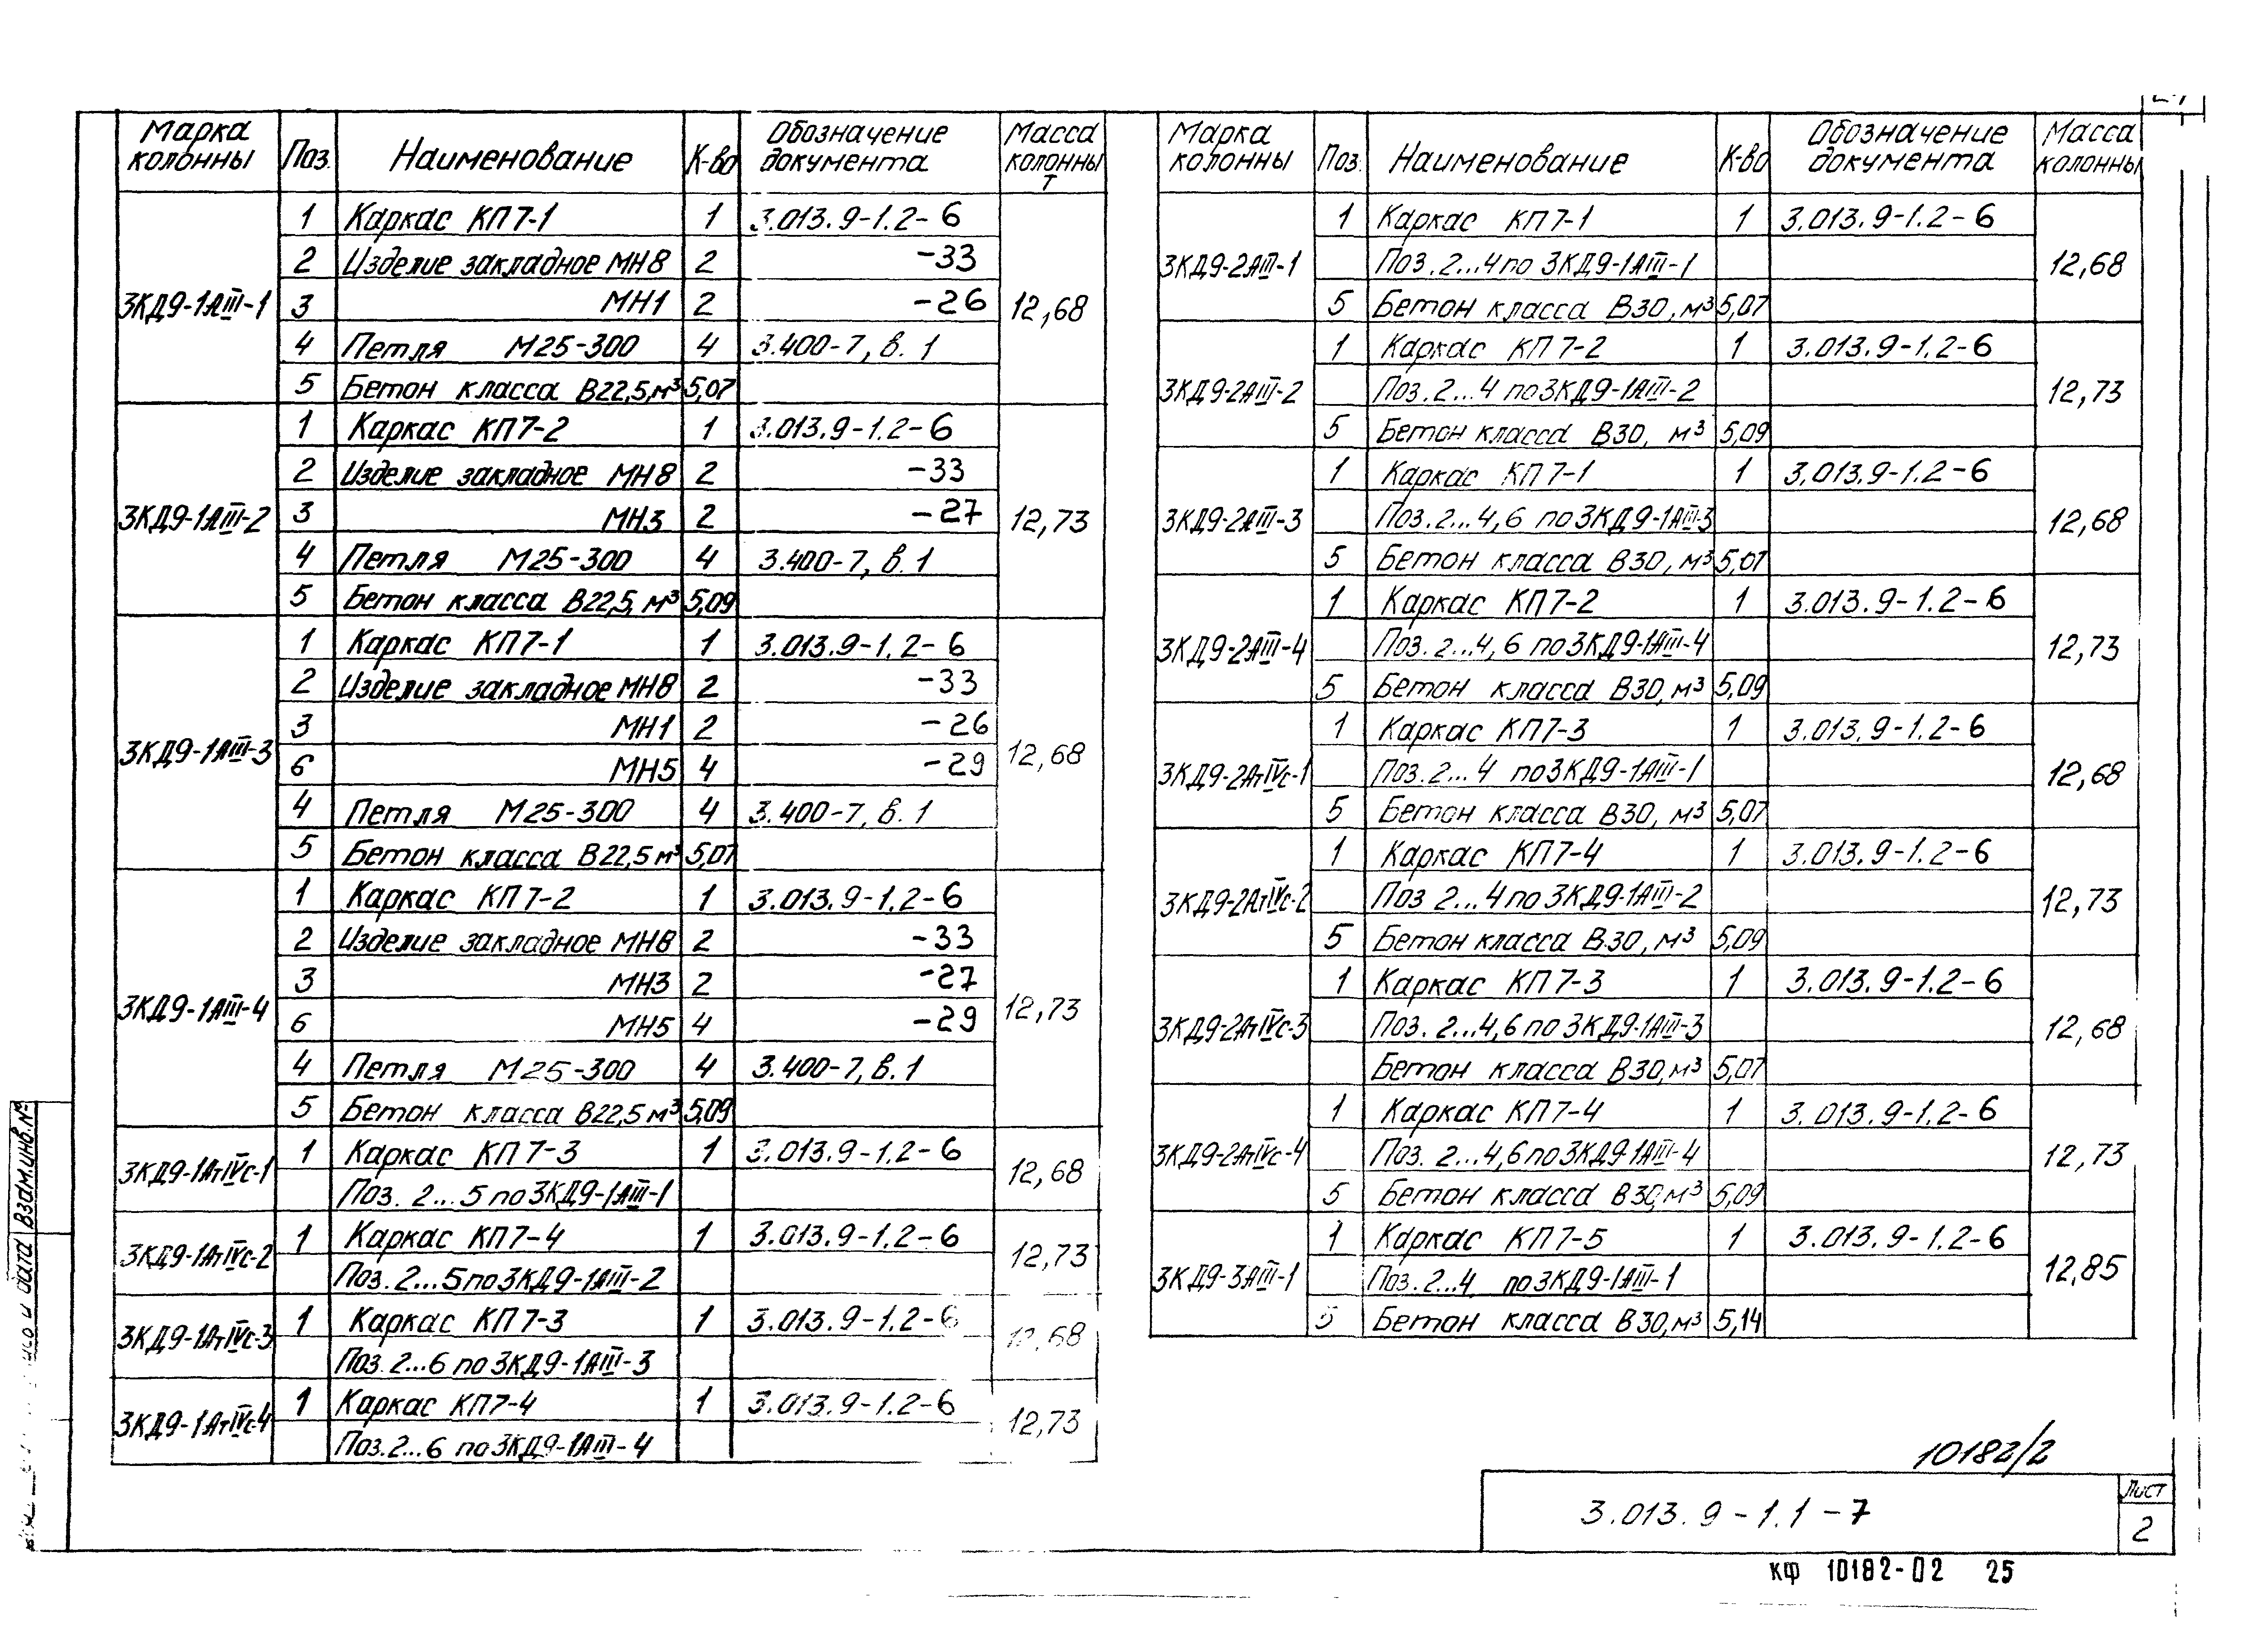 Марка колонны Поз. Наименование К-во Обозначение документа Масса колонны Т
3КД9-1АIII-1 12,68
1 Каркас КП7-1 1 3.013.9-1.2-6
2 Изделие закладное МН8 2 -33
3 МН1 2 -26
4 Петля М25-300 4 3.400-7, в.1
5 Бетон класса В22,5,м³ 5,07
3КД9-1АIII-2 12,73
1 Каркас КП7-2 1 3.013.9-1.2-6
2 Изделие закладное МН8 2 -33
3 МН3 2 -27
4 Петля М25-300 4 3.400-7, в.1
5 Бетон класса В22,5, м³ 5,09
3КД9-1АIII-3 12,68
1 Каркас КП7-1 1 3.013.9-1.2-6
2 Изделие закладное МН8 2 -33
3 МН1 2 -26
6 МН5 4 -29
4 Петля М25-300 4 3.400-7, в.1
5 Бетон класса В22,5 м³ 5,07
3КД9-1АIII-4 12,73
1 Каркас КП7-2 1 3.013.9-1.2-6
2 Изделие закладное МН8 2 -33
3 МН3 2 -27
6 МН5 4 -29
4 Петля М25-300 4 3.400-7, в.1
5 Бетон класса В22,5 м³ 5,09
3КД9-1АтIVс-1 12,68
1 Каркас КП7-3 1 3.013.9-1.2-6
Поз. 2...5 по 3КД9-1АIII-1
3КД9-1АтIVс-2 12,73
1 Каркас КП7-4 1 3.013.9-1.2-6
Поз. 2...5 по 3КД9-1АIII-2
3КД9-1АтIVс-3 12,68
1 Каркас КП7-3 1 3.013.9-1.2-6
Поз. 2...6 по 3КД9-1АIII-3
3КД9-1АтIVс-4 12,73
1 Каркас КП7-4 1 3.013.9-1.2-6
Поз. 2...6 по 3КД9-1АIII-4
Марка колонны Поз. Наименование К-во Обозначение документа Масса колонны
3КД9-2АIII-1 12,68
1 Каркас КП7-1 1 3.013.9-1.2-6
Поз. 2...4 по 3КД9-1АIII-1
5 Бетон класса В30, м³ 5,07
3КД9-2АIII-2 12,73
1 Каркас КП7-2 1 3.013.9-1.2-6
Поз. 2...4 по 3КД9-1АIII-2
5 Бетон класса В30, м³ 5,09
3КД9-2АIII-3 12,68
1 Каркас КП7-1 1 3.013.9-1.2-6
Поз. 2...4,6 по 3КД9-1АIII-3
5 Бетон класса В30, м³ 5,07
3КД9-2АIII-4 12,73
1 Каркас КП7-2 1 3.013.9-1.2-6
Поз. 2...4,6 по 3КД9-1АIII-4
5 Бетон класса В30, м³ 5,09
3КД9-2АтIVс-1 12,68
1 Каркас КП7-3 1 3.013.9-1.2-6
Поз. 2...4 по 3КД9-1АIII-1
5 Бетон класса В30, м³ 5,07
3КД9-2АтIVс-2 12,73
1 Каркас КП7-4 1 3.013.9-1.2-6
Поз 2...4 по 3КД9-1АIII-2
5 Бетон класса В30, м³ 5,09
3КД9-2АтIVс-3 12,68
1 Каркас КП7-3 1 3.013.9-1.2-6
Поз. 2...4,6 по 3КД9-1АIII-3
Бетон класса В30, м³ 5,07
3КД9-2АтIVс-4 12,73
1 Каркас КП7-4 1 3.013.9-1.2-6
Поз. 2...4,6 по 3КД9-1АIII-4
5 Бетон класса В30, м³ 5,09
3КД9-3АIII-1 12,85
1 Каркас КП7-5 1 3.013.9-1.2-6
Поз. 2...4 по 3КД9-1АIII-1
5 Бетон класса В30, м³ 5,14
10182/2
3.013.9-1.1-7
Лист
2
КФ 10182-02 25
Взам.инв.№
и дата